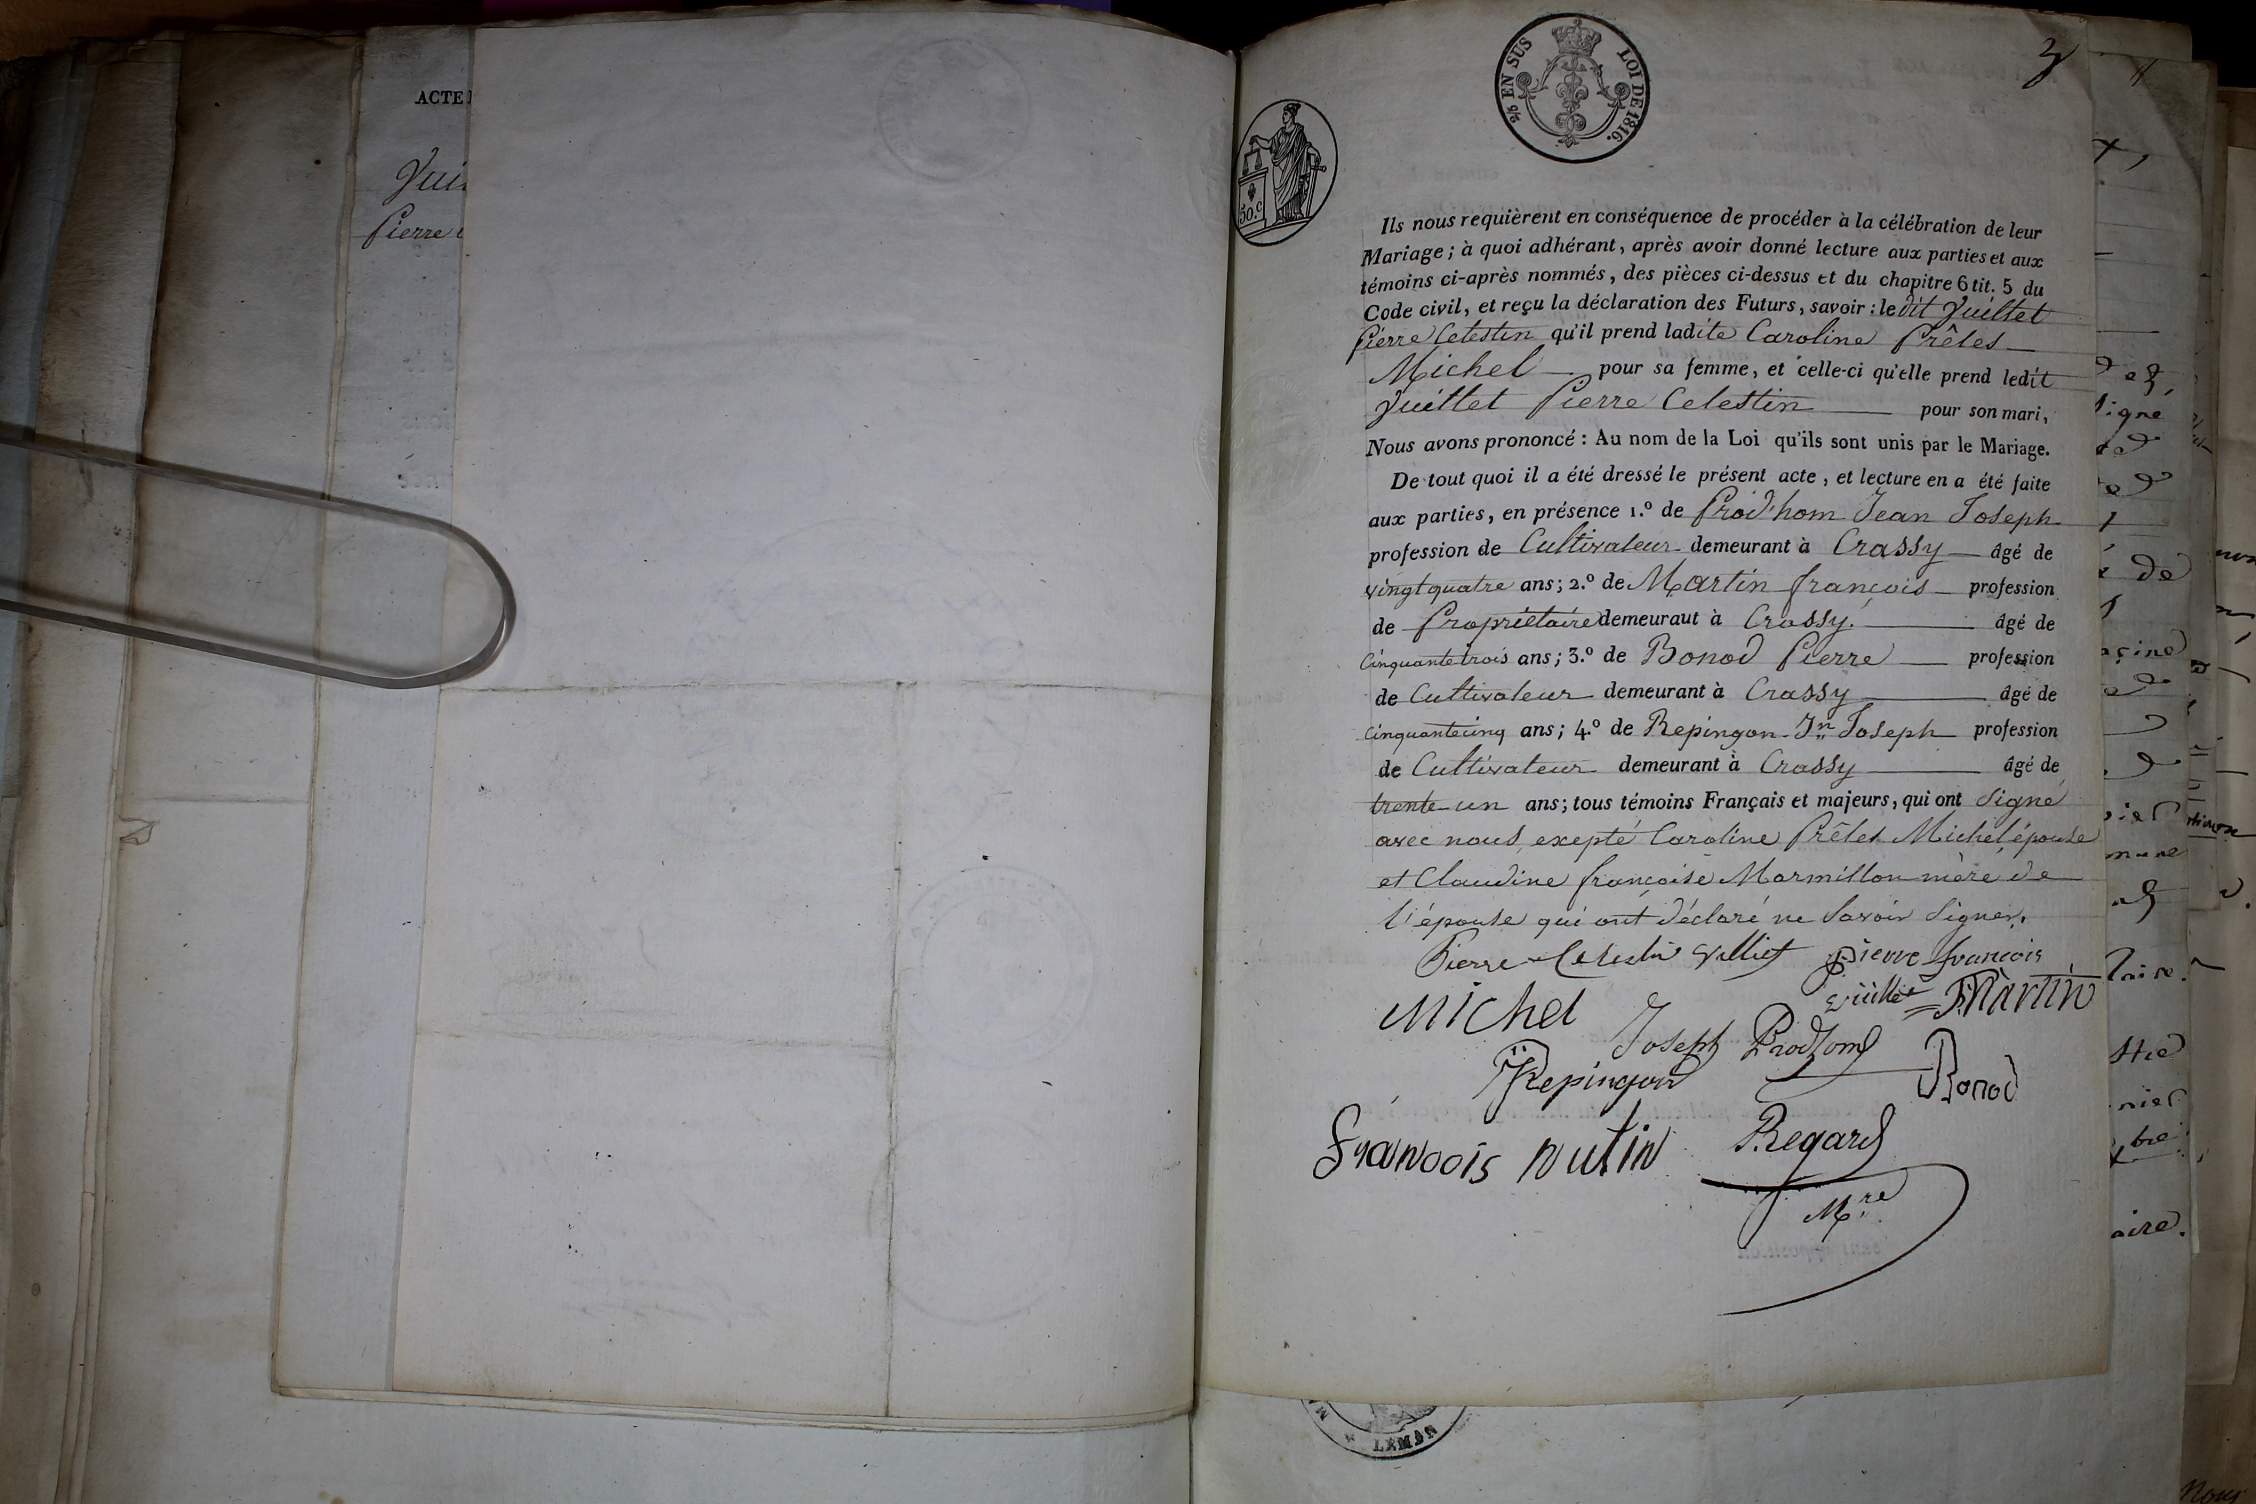 ACTE
Pierre
2/6 EN SUS
LOI DE 1816.
3
50.c
Ils nous requièrent en conséquence de procéder à la célébration de leur
Mariage; à quoi adhérant, après avoir donné lecture aux parties et aux
témoins ci-après nommés, des pièces ci-dessus et du chapitre 6 tit. 5 du
Code civil, et reçu la déclaration des Futurs, savoir: ledit Vuillet
Pierre Celestin qu'il prend ladite Caroline Prêles
Michel pour sa femme, et celle-ci qu'elle prend ledit
Vuillet Pierre Celestin pour son mari,
Nous avons prononcé: Au nom de la Loi qu'ils sont unis par le Mariage.
De tout quoi il a été dressé le présent acte, et lecture en a été faite
aux parties, en présence 1.º de Prod'hom Jean Joseph
profession de Cultivateur demeurant à Crassy âgé de
vingt quatre ans; 2.º de Martin françois profession
de Propriétaire demeuraut à Crassy. âgé de
Cinquante trois ans; 3.º de Bonod Pierre profession
de Cultivateur demeurant à Crassy âgé de
Cinquante cinq ans; 4.º de Repingon Jn Joseph profession
de Cultivateur demeurant à Crassy âgé de
trente un ans; tous témoins Français et majeurs, qui ont signé
avec nous, exepté Caroline Prêles Michel épouse
et Claudine françoise Marmillon mère de
l'épouse qui ont déclaré ne savoir signer.
Pierre Celestin Vulliet Pierre françois
Michel Vuillet F. Martin
Joseph Prodhom
JJ Repingon Bonod
françois nutin Regard
Mre
LEMAN